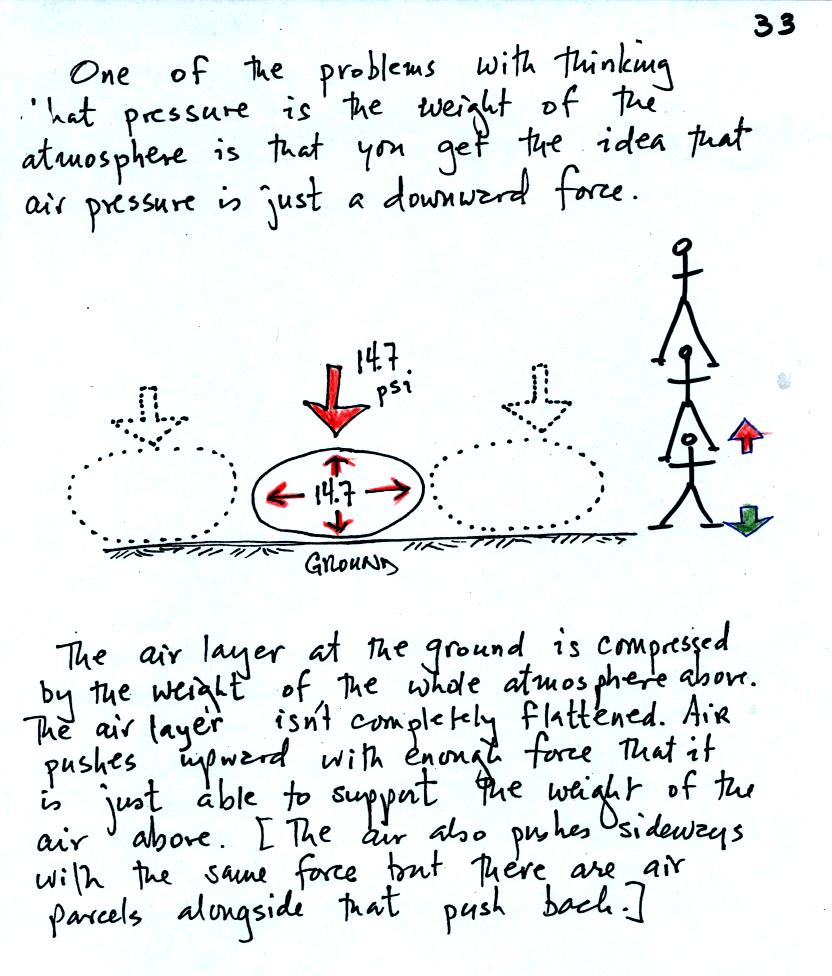 33
One of the problems with thinking
'hat pressure is the weight of the
atmosphere is that you get the idea that
air pressure is just a downward force.
14.7
psi
14.7
GROUND
The air layer at the ground is compressed
by the weight of the whole atmosphere above.
The air layer isn't completely flattened. Air
pushes upward with enough force that it
is just able to support the weight of the
air above. [The air also pushes sideways
with the same force but there are air
parcels alongside that push back.]